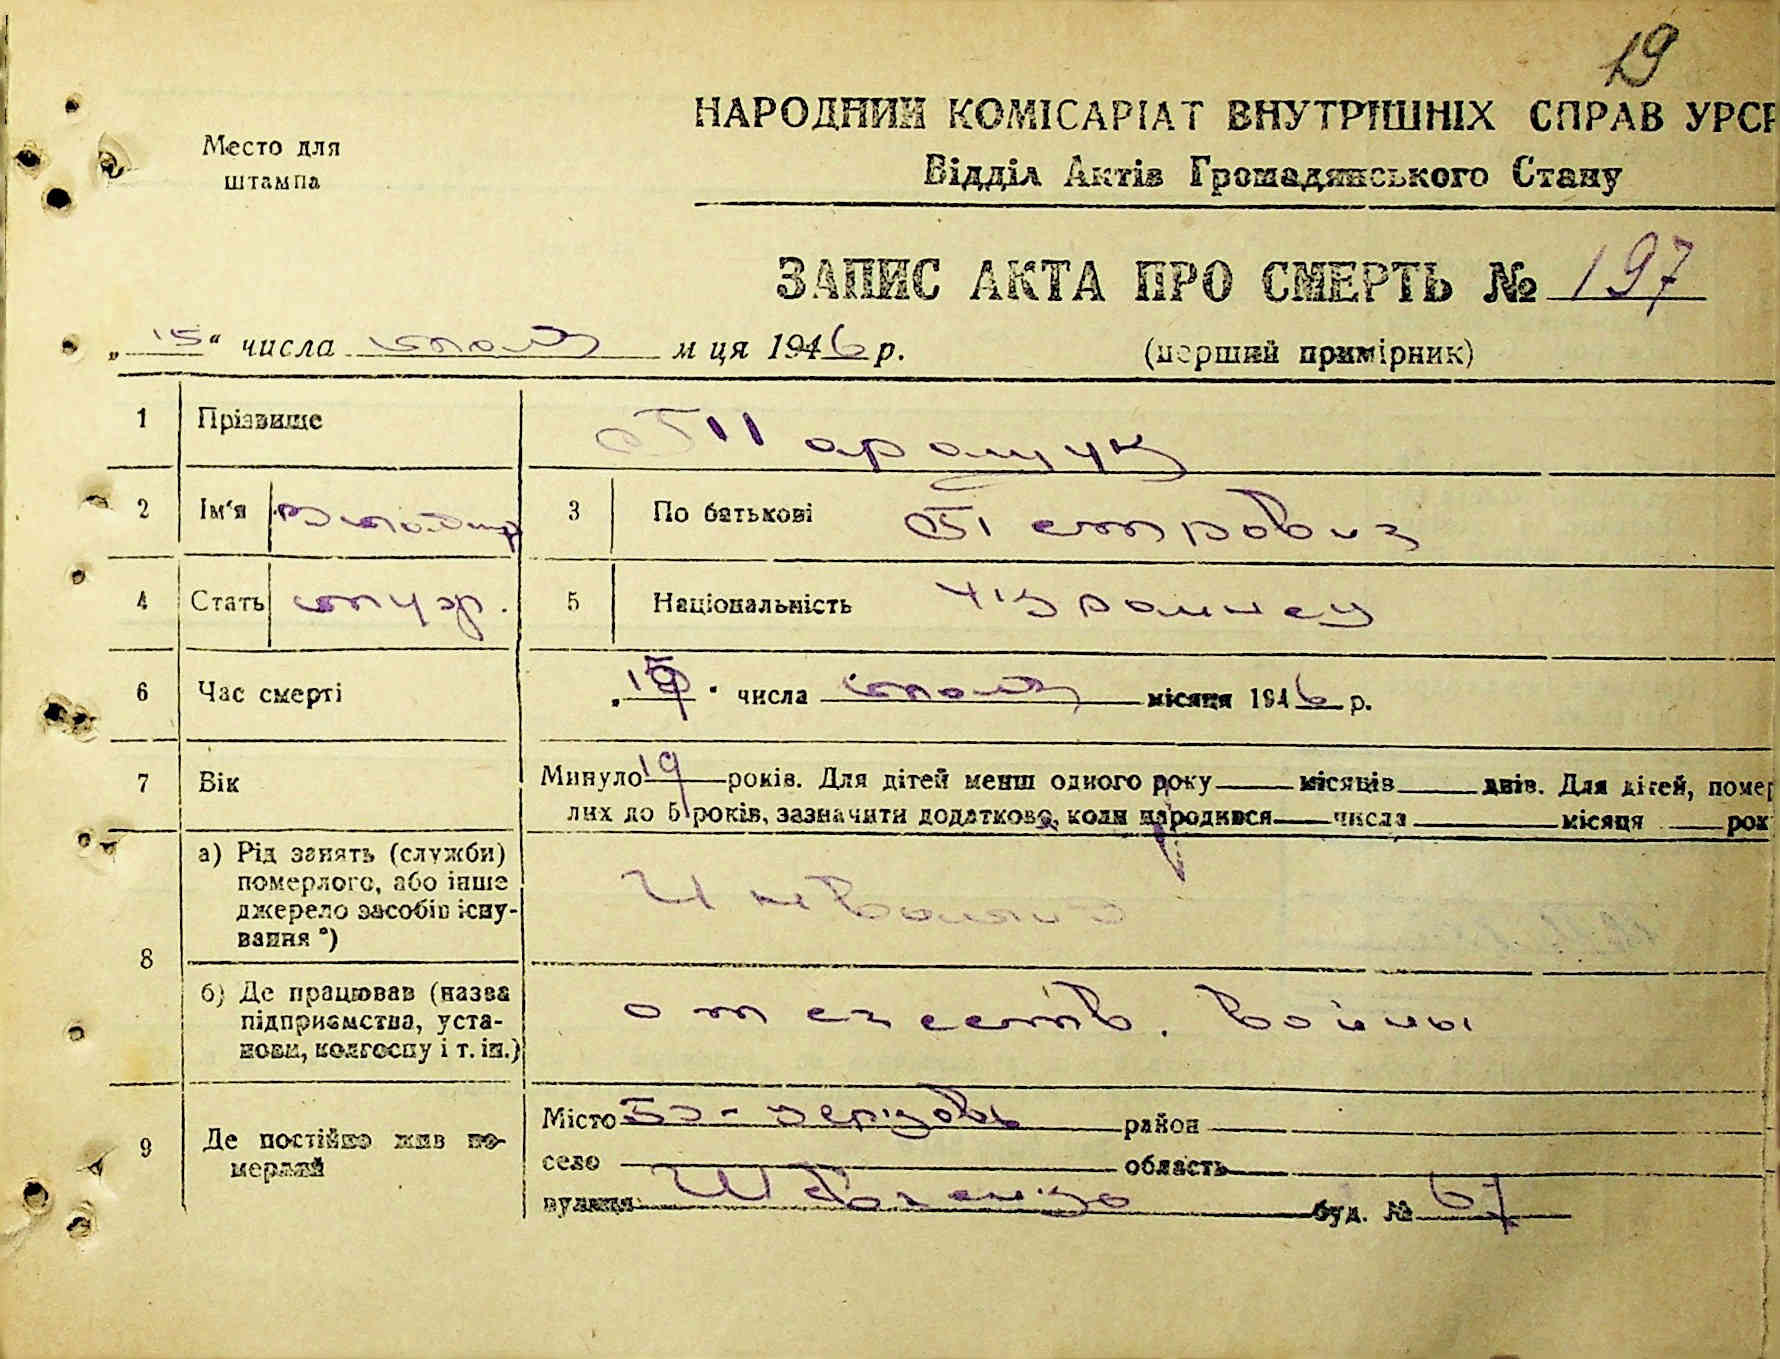 19
НАРОДНИЙ КОМІСАРІАТ ВНУТРІШНІХ СПРАВ УРСР
Место для
штампа
Відділ Актів Громадянського Стану
ЗАПИС АКТА ПРО СМЕРТЬ № 197
„15“ числа июля м ця 1946 р. (перший примірник)
1 Прізвище Паращук
2 Ім'я Владимр 3 По батькові Петрович
4 Стать муж. 5 Національність Украинец
6 Час смерті „15“ числа июля місяця 1946 р.
7 Вік Минуло 19 років. Для дітей менш одного року місяців днів. Для дітей, помер
лих до 5 років, зазначити додатково, коли народився числа місяця рок
8 а) Рід занять (служби)
померлого, або інше
джерело засобів існу-
вання *)
Инвалид
б) Де працював (назва
підприємства, уста-
нови, колгоспу і т. ін.)
отечеств. войны
9 Де постійно жив по-
мерлий
Місто Бо-церковь район
село область
вулиця Шевченко буд. № 67